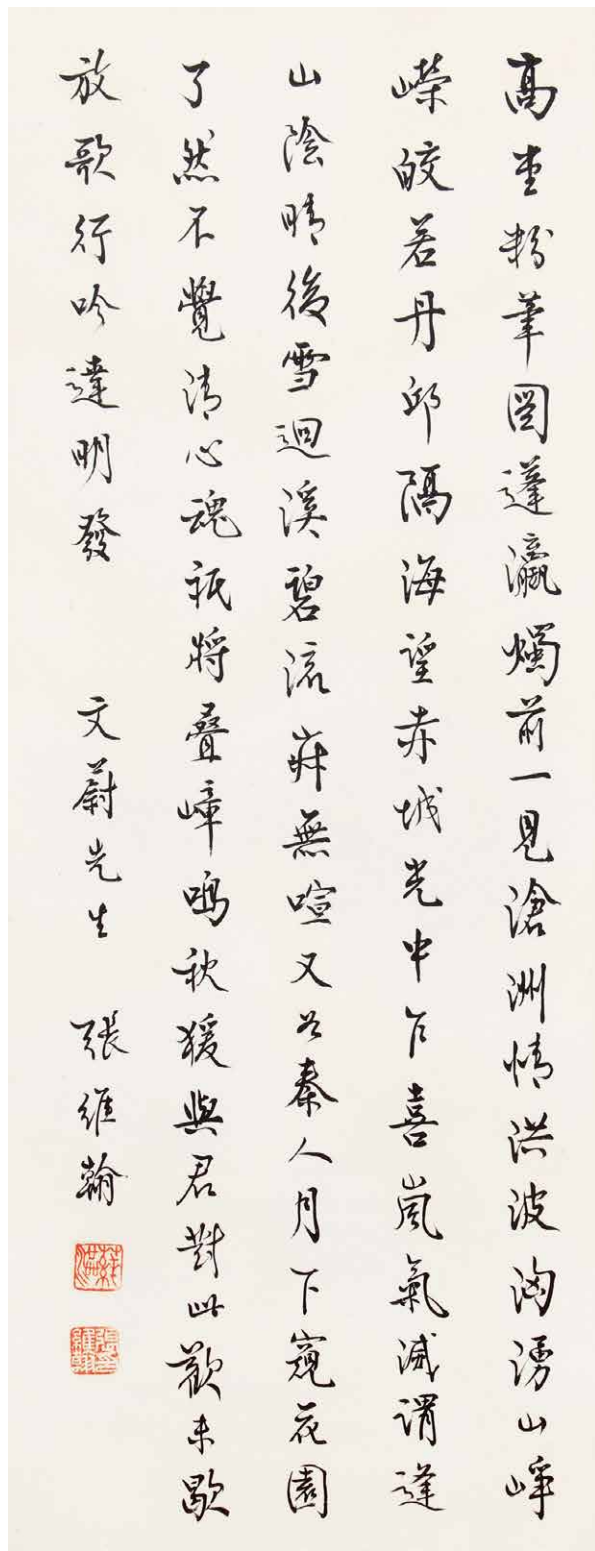 高堂粉筆圖蓬瀛燭前一見滄洲情洪波洶湧山崢
嶸皎若丹邱隔海望赤城光中乍喜嵐氣滅謂逢
山陰晴後雪迴溪碧流寂無喧又如秦人月下窺花園
了然不覺清心魂祇將叠嶂鳴秋猨與君對此歡未歇
放歌行吟達明發 文蔚先生 張維翰